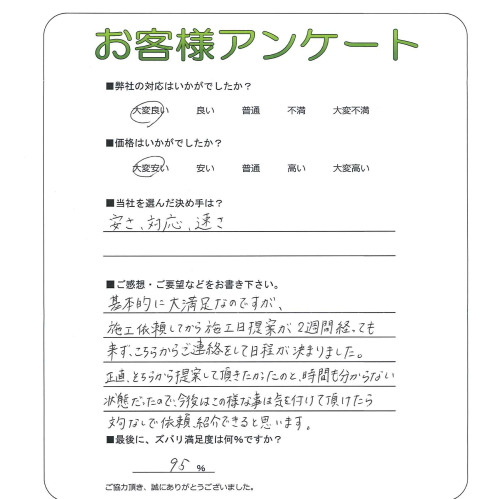 お客様アンケート
■弊社の対応はいかがでしたか？
大変良い 良い 普通 不満 大変不満
■価格はいかがでしたか？
大変安い 安い 普通 高い 大変高い
■当社を選んだ決め手は？
安さ、対応、速さ
■ご感想・ご要望などをお書き下さい。
基本的に大満足なのですが、
施工依頼してから施工日提案が2週間経っても
来ず、こちらからご連絡をして日程が決まりました。
正直、そちらから提案して頂きたかったのと、時間も分からない
状態だったので、今後はこの様な事は気を付けて頂けたら
文句なしで依頼、紹介できると思います。
■最後に、ズバリ満足度は何%ですか？
95 %
ご協力頂き、誠にありがとうございました。